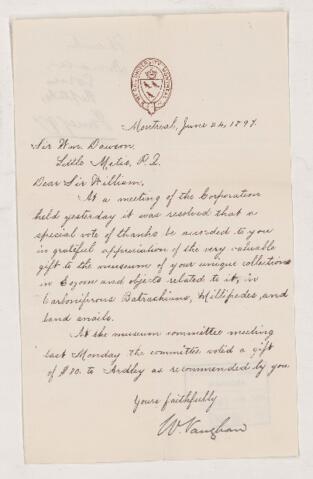 McGILL UNIVERSITY MONTREAL
Montreal, June 24, 1897.
Sir Wm. Dawson,
Little Metis, P.Q.
Dear Sir William,
At a meeting of the Corporation
held yesterday it was resolved that a
special vote of thanks be accorded to you
in grateful appreciation of the very valuable
gift to the museum of your unique collections
in Eozoon and objects related to it, in
Carboniferous Batrachians, Millipedes, and
land snails.
At the museum committee meeting
last Monday the committee voted a gift
of $80. to Ardley as recommended by you.
Yours faithfully
W. Vaughan